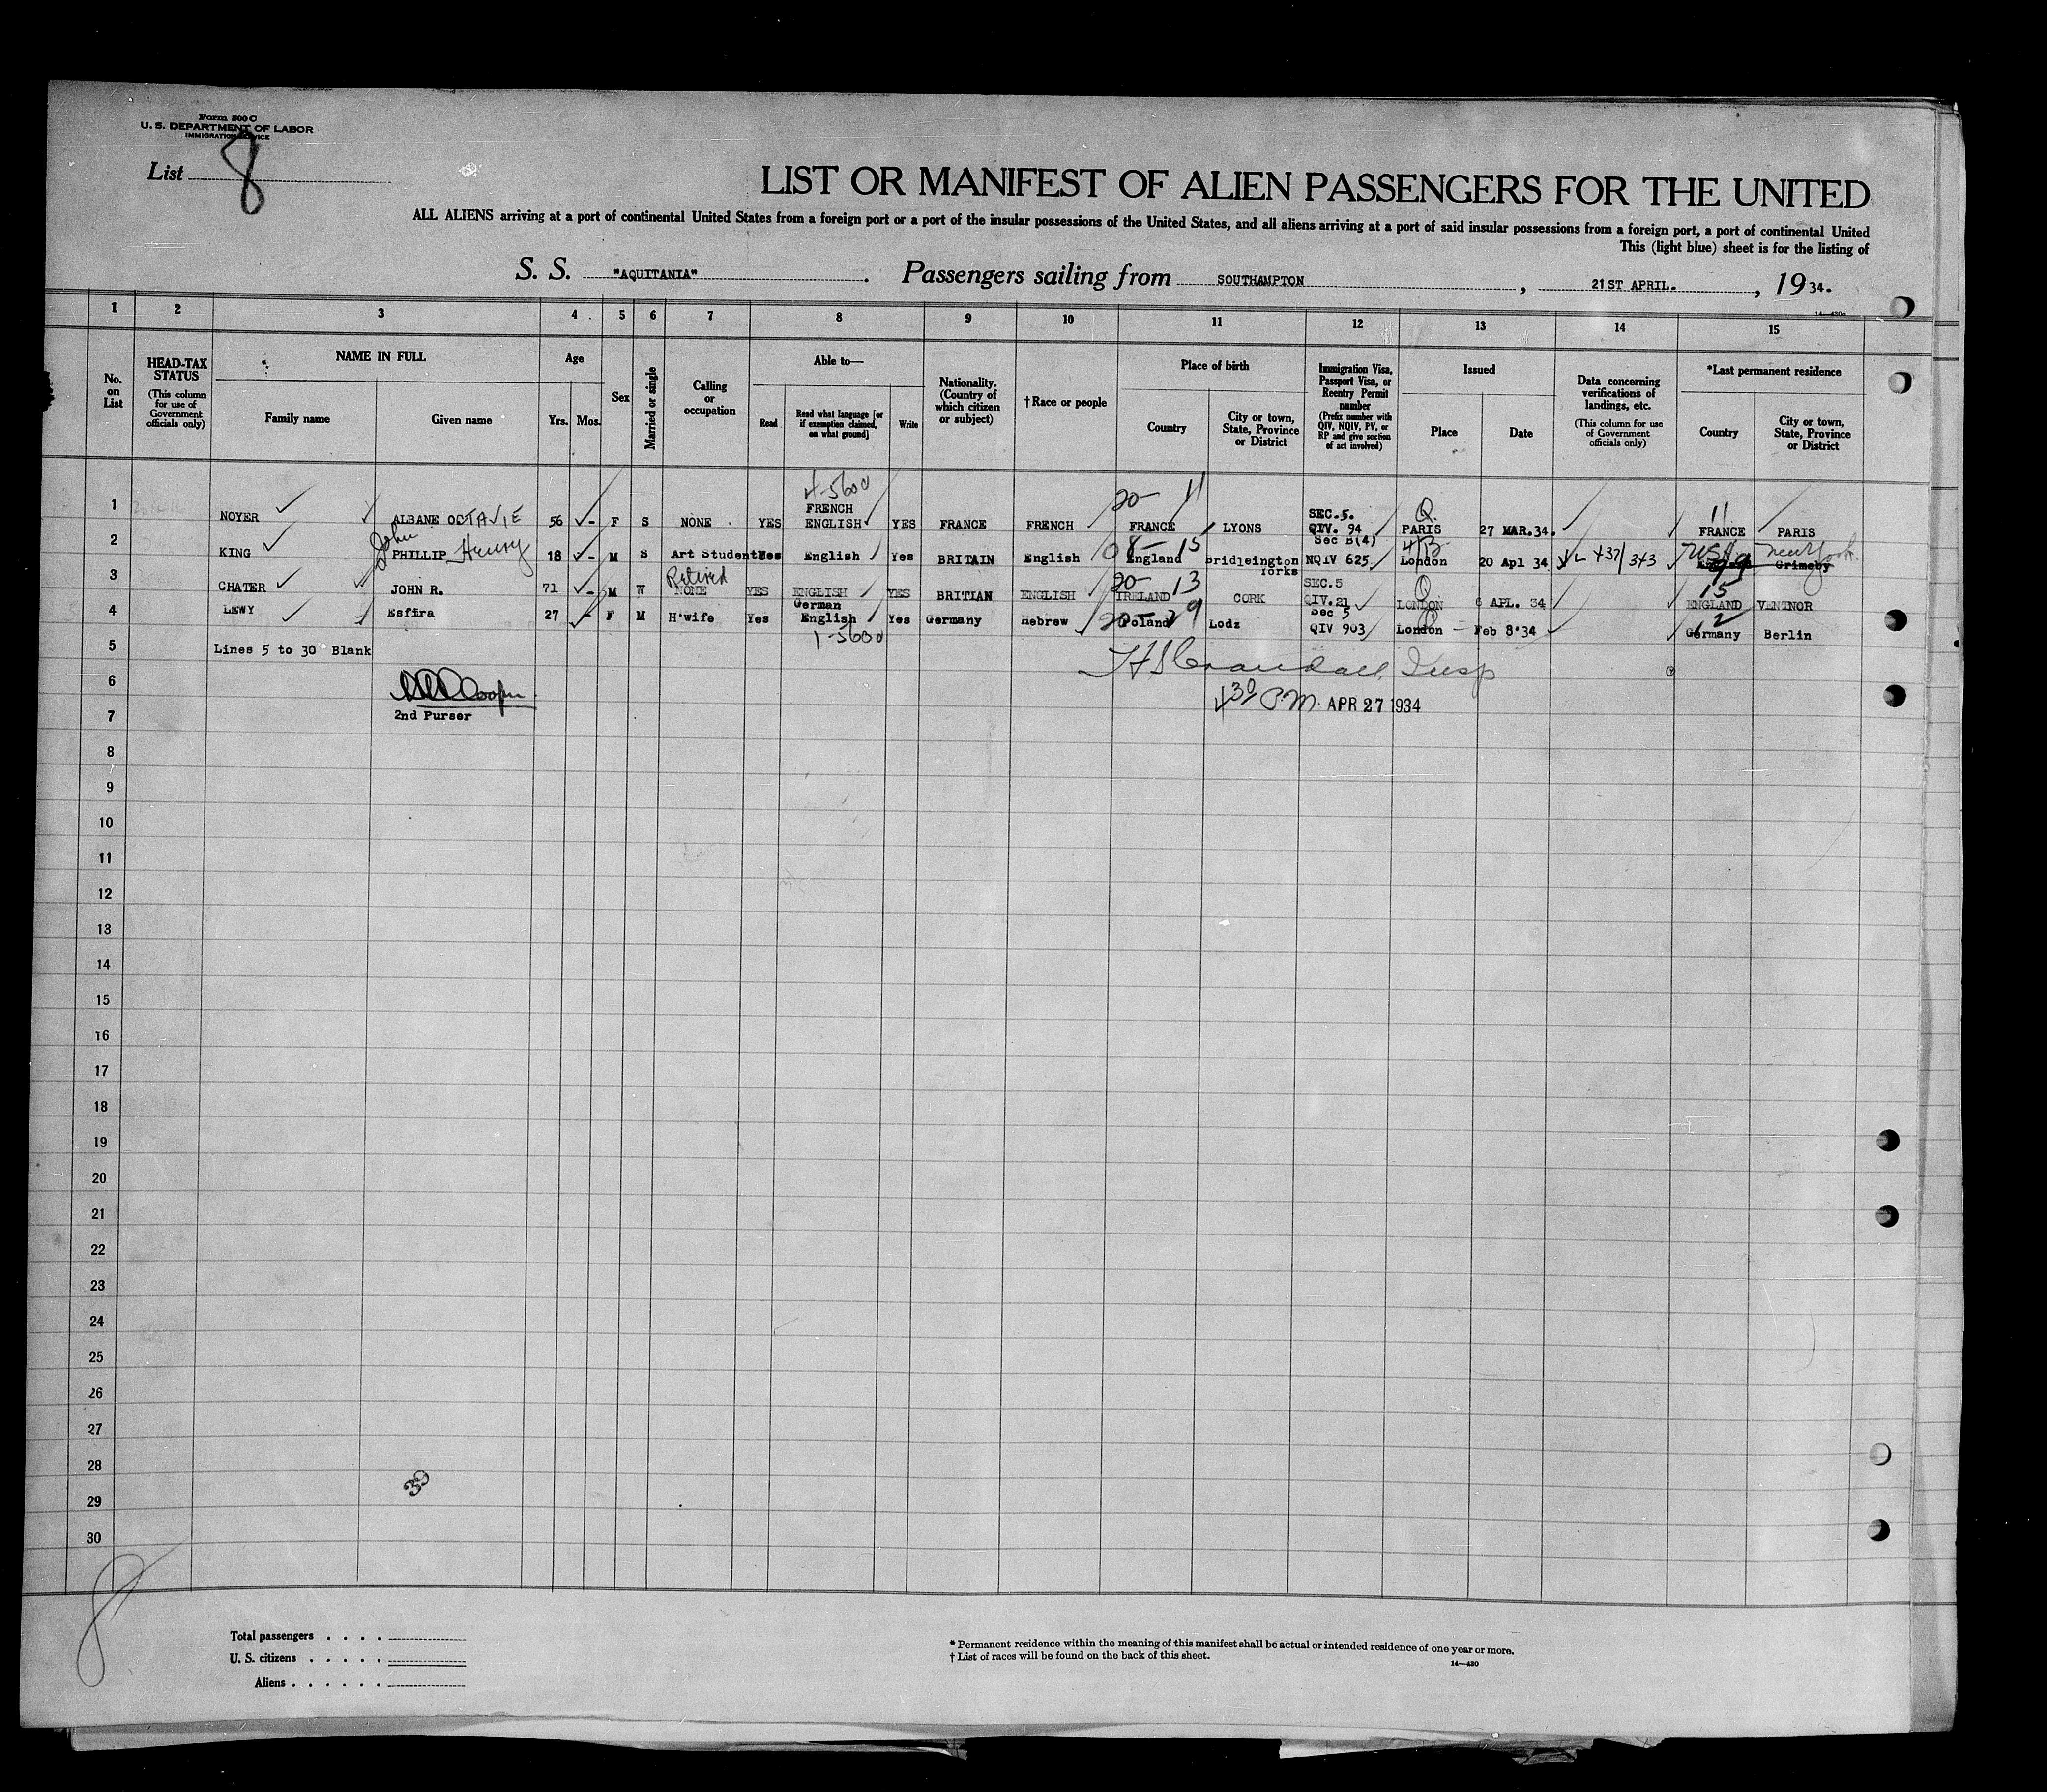 Form 500 C
U. S. DEPARTMENT OF LABOR
IMMIGRATION SERVICE
List 8
LIST OR MANIFEST OF ALIEN PASSENGERS FOR THE UNITED
ALL ALIENS arriving at a port of continental United States from a foreign port or a port of the insular possessions of the United States, and all aliens arriving at a port of said insular possessions from a foreign port, a port of continental United
This (light blue) sheet is for the listing of
S. S. "AQUITANIA" . Passengers sailing from SOUTHAMPTON , 21ST APRIL. , 19 34.
1 2 3 4 5 6 7 8 9 10 11 12 13 14 15
No. on List
HEAD-TAX STATUS
(This column for use of Government officials only)
NAME IN FULL
Family name
Given name
Age
Yrs. Mos.
Sex
Married or single
Calling or occupation
Able to—
Read
Read what language [or if exemption claimed, on what ground]
Write
Nationality. (Country of which citizen or subject)
†Race or people
Place of birth
Country
City or town, State, Province or District
Immigration Visa, Passport Visa, or Reentry Permit number
(Prefix number with QIV, NQIV, PV, or RP and give section of act involved)
Issued
Place
Date
Data concerning verifications of landings, etc.
(This column for use of Government officials only)
*Last permanent residence
Country
City or town, State, Province or District
4-5600 20- 11
FRENCH SEC.5. Q. 11
1 NOYER ALBANE OCTAVIE 56 - F S NONE YES ENGLISH YES FRANCE FRENCH FRANCE LYONS QIV. 94 PARIS 27 MAR.34. FRANCE PARIS
John 08- 15 Sec 3(4) 4/B USA New York.
2 KING PHILLIP Henry 18 - M S Art Student Yes English Yes BRITAIN English England Bridleington Yorks NQIV 625 London 20 Apl 34 VL 437/343 England Grimsby
Retired 20- 13 SEC.5 Q 15
3 CHATER JOHN R. 71 - M W NONE YES ENGLISH YES BRITIAN ENGLISH IRELAND CORK QIV.21 LONDON 6 APL. 34 ENGLAND VENTNOR
German 20-29 Sec 5 Q 12
4 LEWY Esfira 27 - F M H'wife Yes English Yes Germany Hebrew Poland Lodz QIV 903 London Feb 8'34 Germany Berlin
1-5600
5 Lines 5 to 30 Blank
Crandall, Insp
6 Cooper
7 2nd Purser
4 30 P.M. APR 27 1934
8
9
10
11
12
13
14
15
16
17
18
19
20
21
22
23
24
25
26
27
28
29
30
8
Total passengers . . . .
U. S. citizens . . . . .
Aliens . . . . . .
* Permanent residence within the meaning of this manifest shall be actual or intended residence of one year or more.
† List of races will be found on the back of this sheet.
14—430